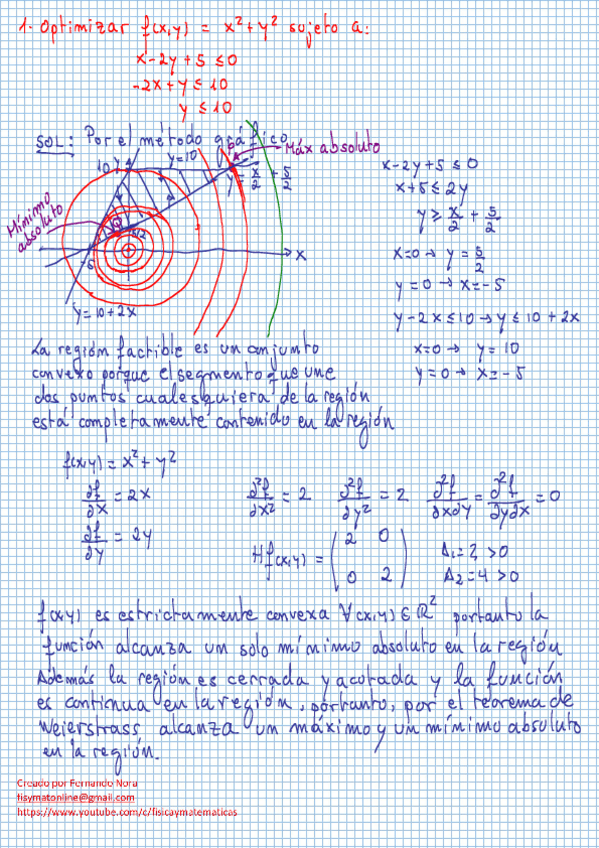 1. Optimizar f(x,y) = x² + y² sujeto a:
x - 2y + 5 ≤ 0
-2x + y ≤ 10
y ≤ 10
SOL: Por el método gráfico
Máx absoluto
10
y
y = 10
y = x/2 + 5/2
Mínimo
absoluto
5/2
-5
x
y = 10 + 2x
x - 2y + 5 ≤ 0
x + 5 ≤ 2y
y ≥ x/2 + 5/2
x = 0 → y = 5/2
y = 0 → x = -5
y - 2x ≤ 10 → y ≤ 10 + 2x
x = 0 → y = 10
y = 0 → x = -5
La región factible es un conjunto
convexo porque el segmento que une
dos puntos cualesquiera de la región
está completamente contenido en la región
f(x,y) = x² + y²
∂f/∂x = 2x
∂²f/∂x² = 2 ∂²f/∂y² = 2 ∂²f/∂x∂y = ∂²f/∂y∂x = 0
∂f/∂y = 2y
Hf(x,y) = (2 0
0 2)
Δ₁ = 2 > 0
Δ₂ = 4 > 0
f(x,y) es estrictamente convexa ∀(x,y) ∈ ℝ² por tanto la
función alcanza un solo mínimo absoluto en la región
Además la región es cerrada y acotada y la función
es continua en la región, por tanto, por el teorema de
Weierstrass alcanza un máximo y un mínimo absoluto
en la región.
Creado por Fernando Nora
fisymatonline@gmail.com
https://www.youtube.com/c/fisicaymatematicas